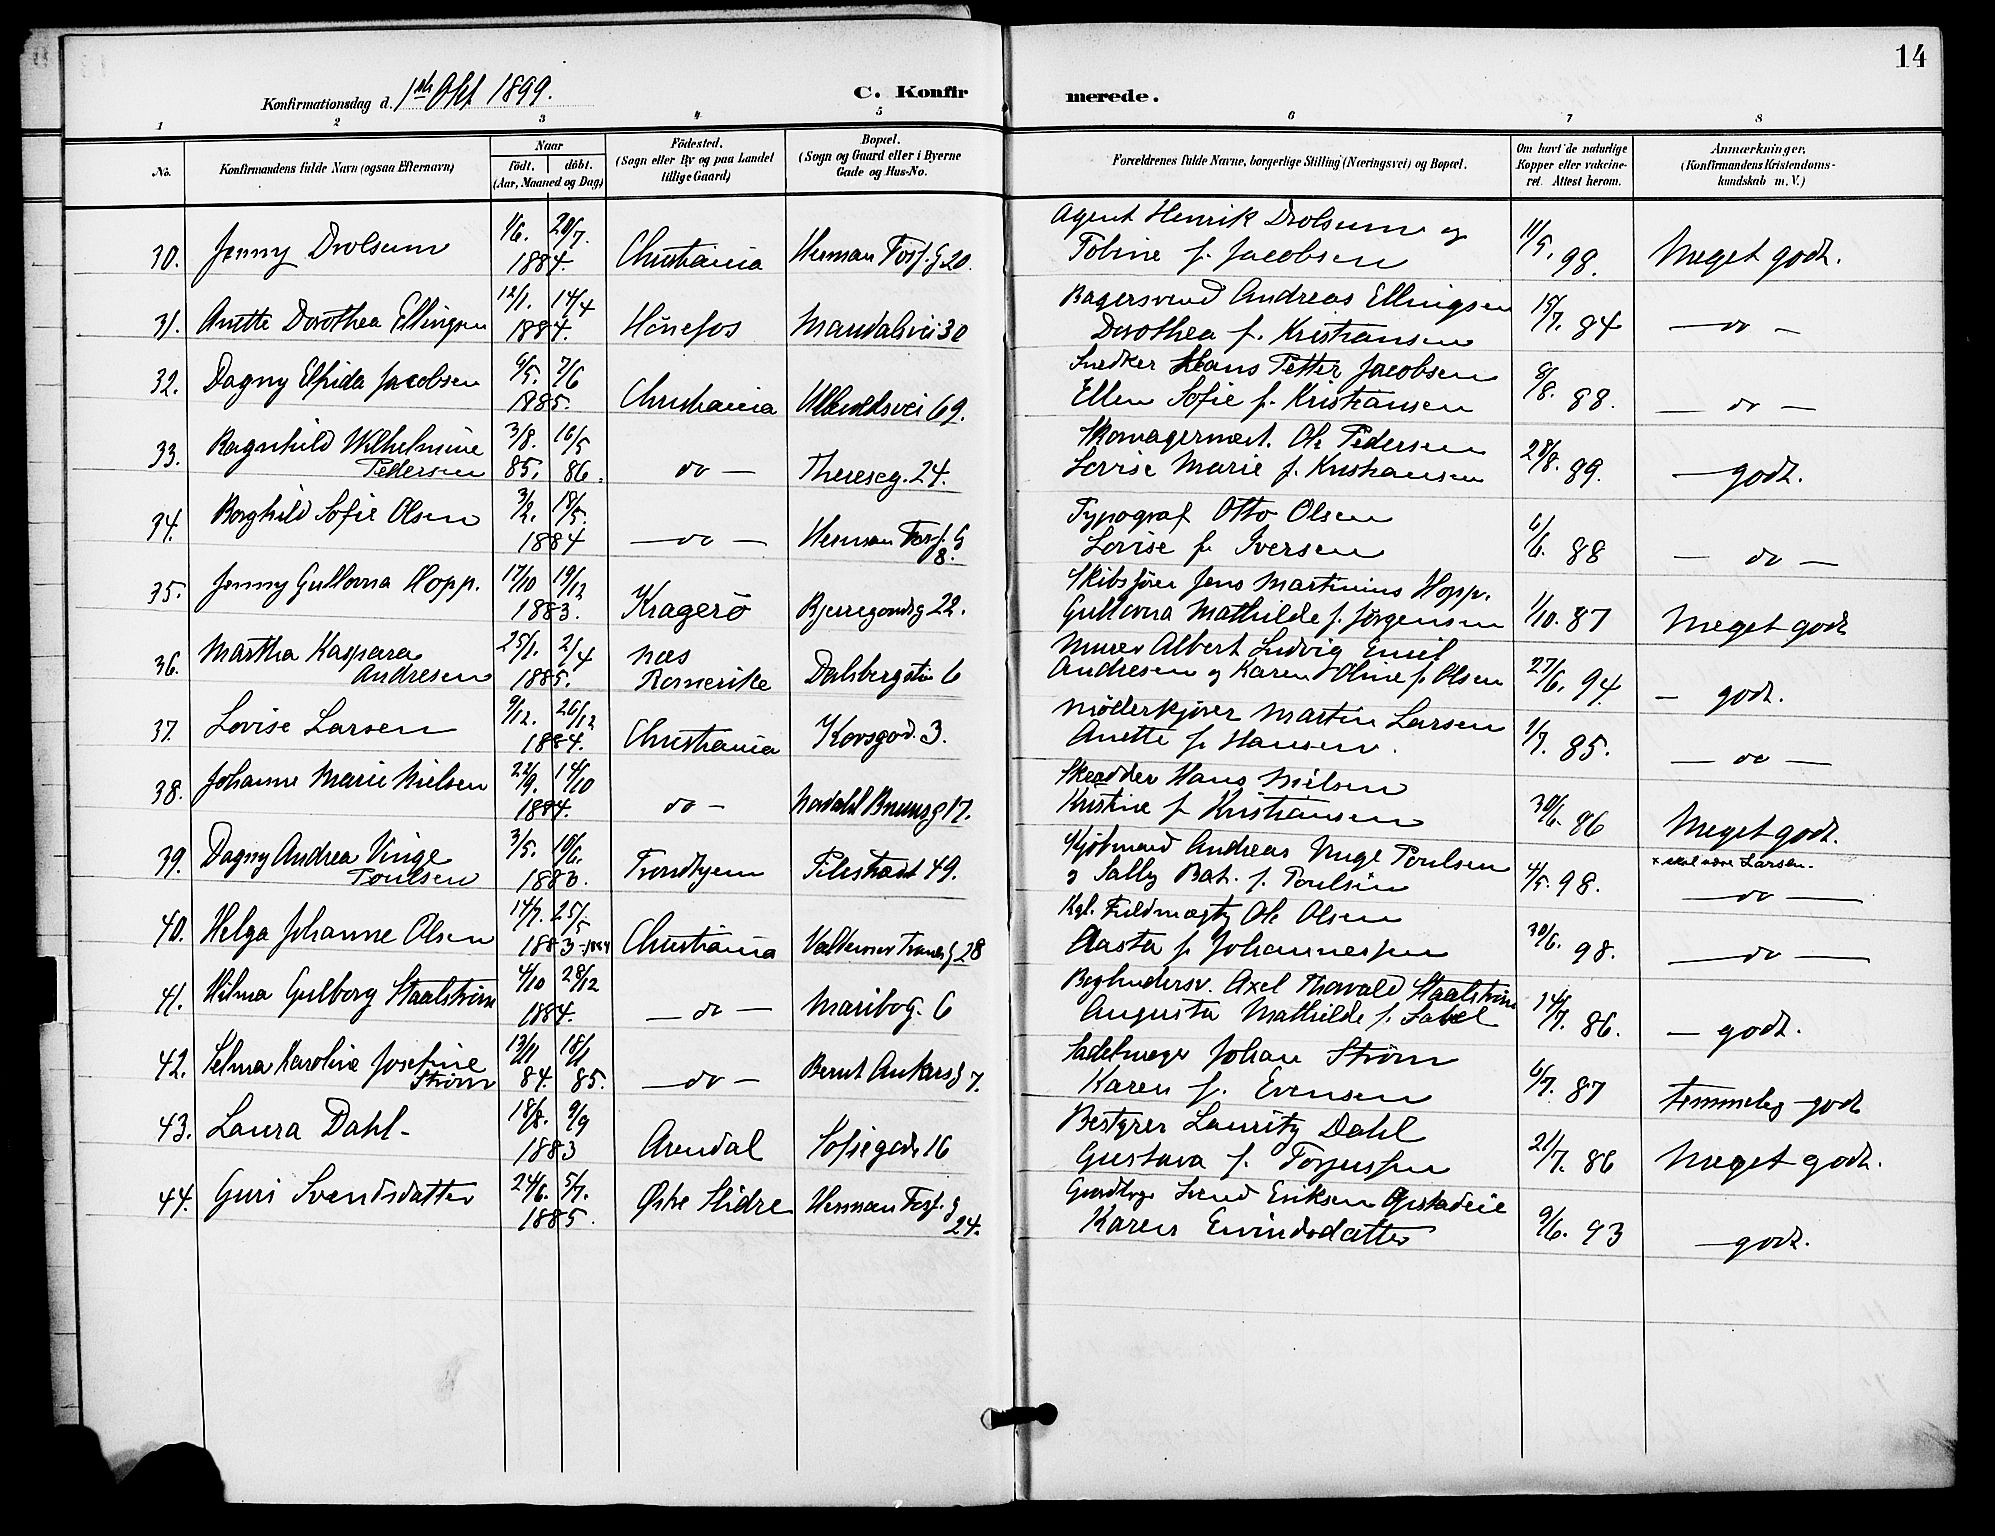 14
Konfirmationsdag d. 1ste Okt 1899.
C. Konfirmerede.
1 2 3 4 5 6 7 8
No.
Konfirmandens fulde Navn (ogsaa Efternavn)
Naar
født. døbt.
(Aar, Maaned og Dag)
Fødested.
(Sogn eller By og paa Landet
tillige Gaard)
Bopæl.
(Sogn og Gaard eller i Byerne
Gade og Hus-No.
Forældrenes fulde Navne, borgerlige Stilling (Næringsvei) og Bopæl.
Om havt de naturlige
Kopper eller vakcine-
ret. Attest herom.
Anmærkninger,
(Konfirmandens Kristendoms-
kundskab m. V.)
30. Jenny Drolsum 1/6. 20/7. 1884. Christiania Herman Foss. G 20.
Agent Henrik Drolsum og
Tobine f. Jacobsen 11/5. 98. Meget godt.
31. Anette Dorothea Ellingsen 12/1. 14/4 1884. Hønefos Maridalsvei 30
Bagersvend Andreas Ellingsen
Dorothea f. Kristiansen 15/7. 84 — do —
32. Dagny Elfrida Jacobsen 6/5. 7/6 1885. Christiania Ullevoldsvei 69.
Snedker Hans Petter Jacobsen
Ellen Sofie f. Kristiansen 8/8. 88. — do —
33. Ragnhild Wilhelmine
Pedersen 3/8. 85. 16/5 86. do — Thereseg. 24.
Skomagermest. Ole Pedersen
Lovise Marie f. Kristiansen 28/8. 89. — godt.
34. Borghild Sofie Olsen 3/2. 18/5. 1884 — do — Herman Foss. G
8.
Typograf Otto Olsen
Lovise f. Iversen 6/6. 88 — do —
35. Jenny Gullovna Hopp. 17/10 19/12 1883. Kragerø Bjerregaardsg 22.
Skibsfører Jens Martinius Hopp.
Gullovna Mathilde f. Jørgensen 1/10. 87 Meget godt
36. Martha Kaspara
Andresen 25/1. 2/4 1885. Næs
Romerike Dalsbergstien 6
Murer Albert Ludvig Emil
Andresen og Karen Oline f. Olsen 27/6. 94. — godt.
37. Lovise Larsen 9/12. 26/12 1884. Christiania Korsgad. 3.
Møderkjører Martin Larsen
Anette f. Hansen. 1/7. 85. — do —
38. Johanne Marie Nielsen 22/9. 14/10 1884. do — Nordahl Brunsg 17.
Skrædder Hans Nielsen
Kristine f. Kristiansen 30/6. 86 Meget godt.
39. Dagny Andrea Vinge
Poulsen 3/5. 10/6. 1883. Trondhjem Pilestræd 49.
Kjøbmand Andreas Vinge Poulsen
og Sally Bat. f. Poulsen 4/5. 98. x skal være Larsen.
— do —
40. Helga Johanne Olsen 14/7. 25/5 1883 - 1884 Christiania Valdemar Tranes G 28
Kgl. Fuldmægtig Ole Olsen
Aasta f. Johannessen 30/6. 98. — do —
41. Hilma Gulborg Staalstrøm 4/10 28/12 1884. — do — Maribog. 6
Axel Thorvald Staalstrøm
Augusta Mathilde f. Sabel 14/7. 86. — godt.
42. Selma Karoline Josefine
Strøm 13/11 84. 18/1 85. — do — Bernt Ankers G 7.
Sadelmager Johan Strøm
Karen f. Evensen 6/7. 87 temmelig godt
43. Laura Dahl - 18/8. 9/9 1883 Arendal Sofiegade 16
Bestyrer Lauritz Dahl
Gustava f. Torjussen 21/7. 86 Meget godt.
44. Guri Svendsdatter 24/6. 5/7. 1885. Østre Slidre Herman Foss. G
24.
Svend Eriksen
Karen Eivindsdatter 9/6. 93 — godt.